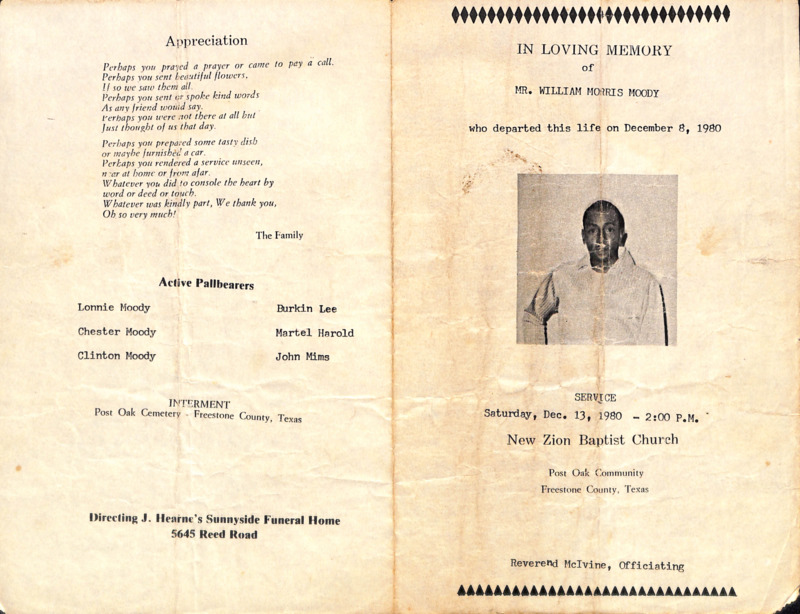 Appreciation
Perhaps you prayed a prayer or came to pay a call.
Perhaps you sent beautiful flowers,
If so we saw them all.
Perhaps you sent or spoke kind words
As any friend would say.
Perhaps you were not there at all but
Just thought of us that day.
Perhaps you prepared some tasty dish
or maybe furnished a car.
Perhaps you rendered a service unseen,
near at home or from afar.
Whatever you did to console the heart by
word or deed or touch.
Whatever was kindly part, We thank you,
Oh so very much!
The Family
Active Pallbearers
Lonnie Moody Burkin Lee
Chester Moody Martel Harold
Clinton Moody John Mims
INTERMENT
Post Oak Cemetery - Freestone County, Texas
Directing J. Hearne's Sunnyside Funeral Home
5645 Reed Road
IN LOVING MEMORY
of
MR. WILLIAM MORRIS MOODY
who departed this life on December 8, 1980
SERVICE
Saturday, Dec. 13, 1980 - 2:00 P.M.
New Zion Baptist Church
Post Oak Community
Freestone County, Texas
Reverend McIvine, Officiating